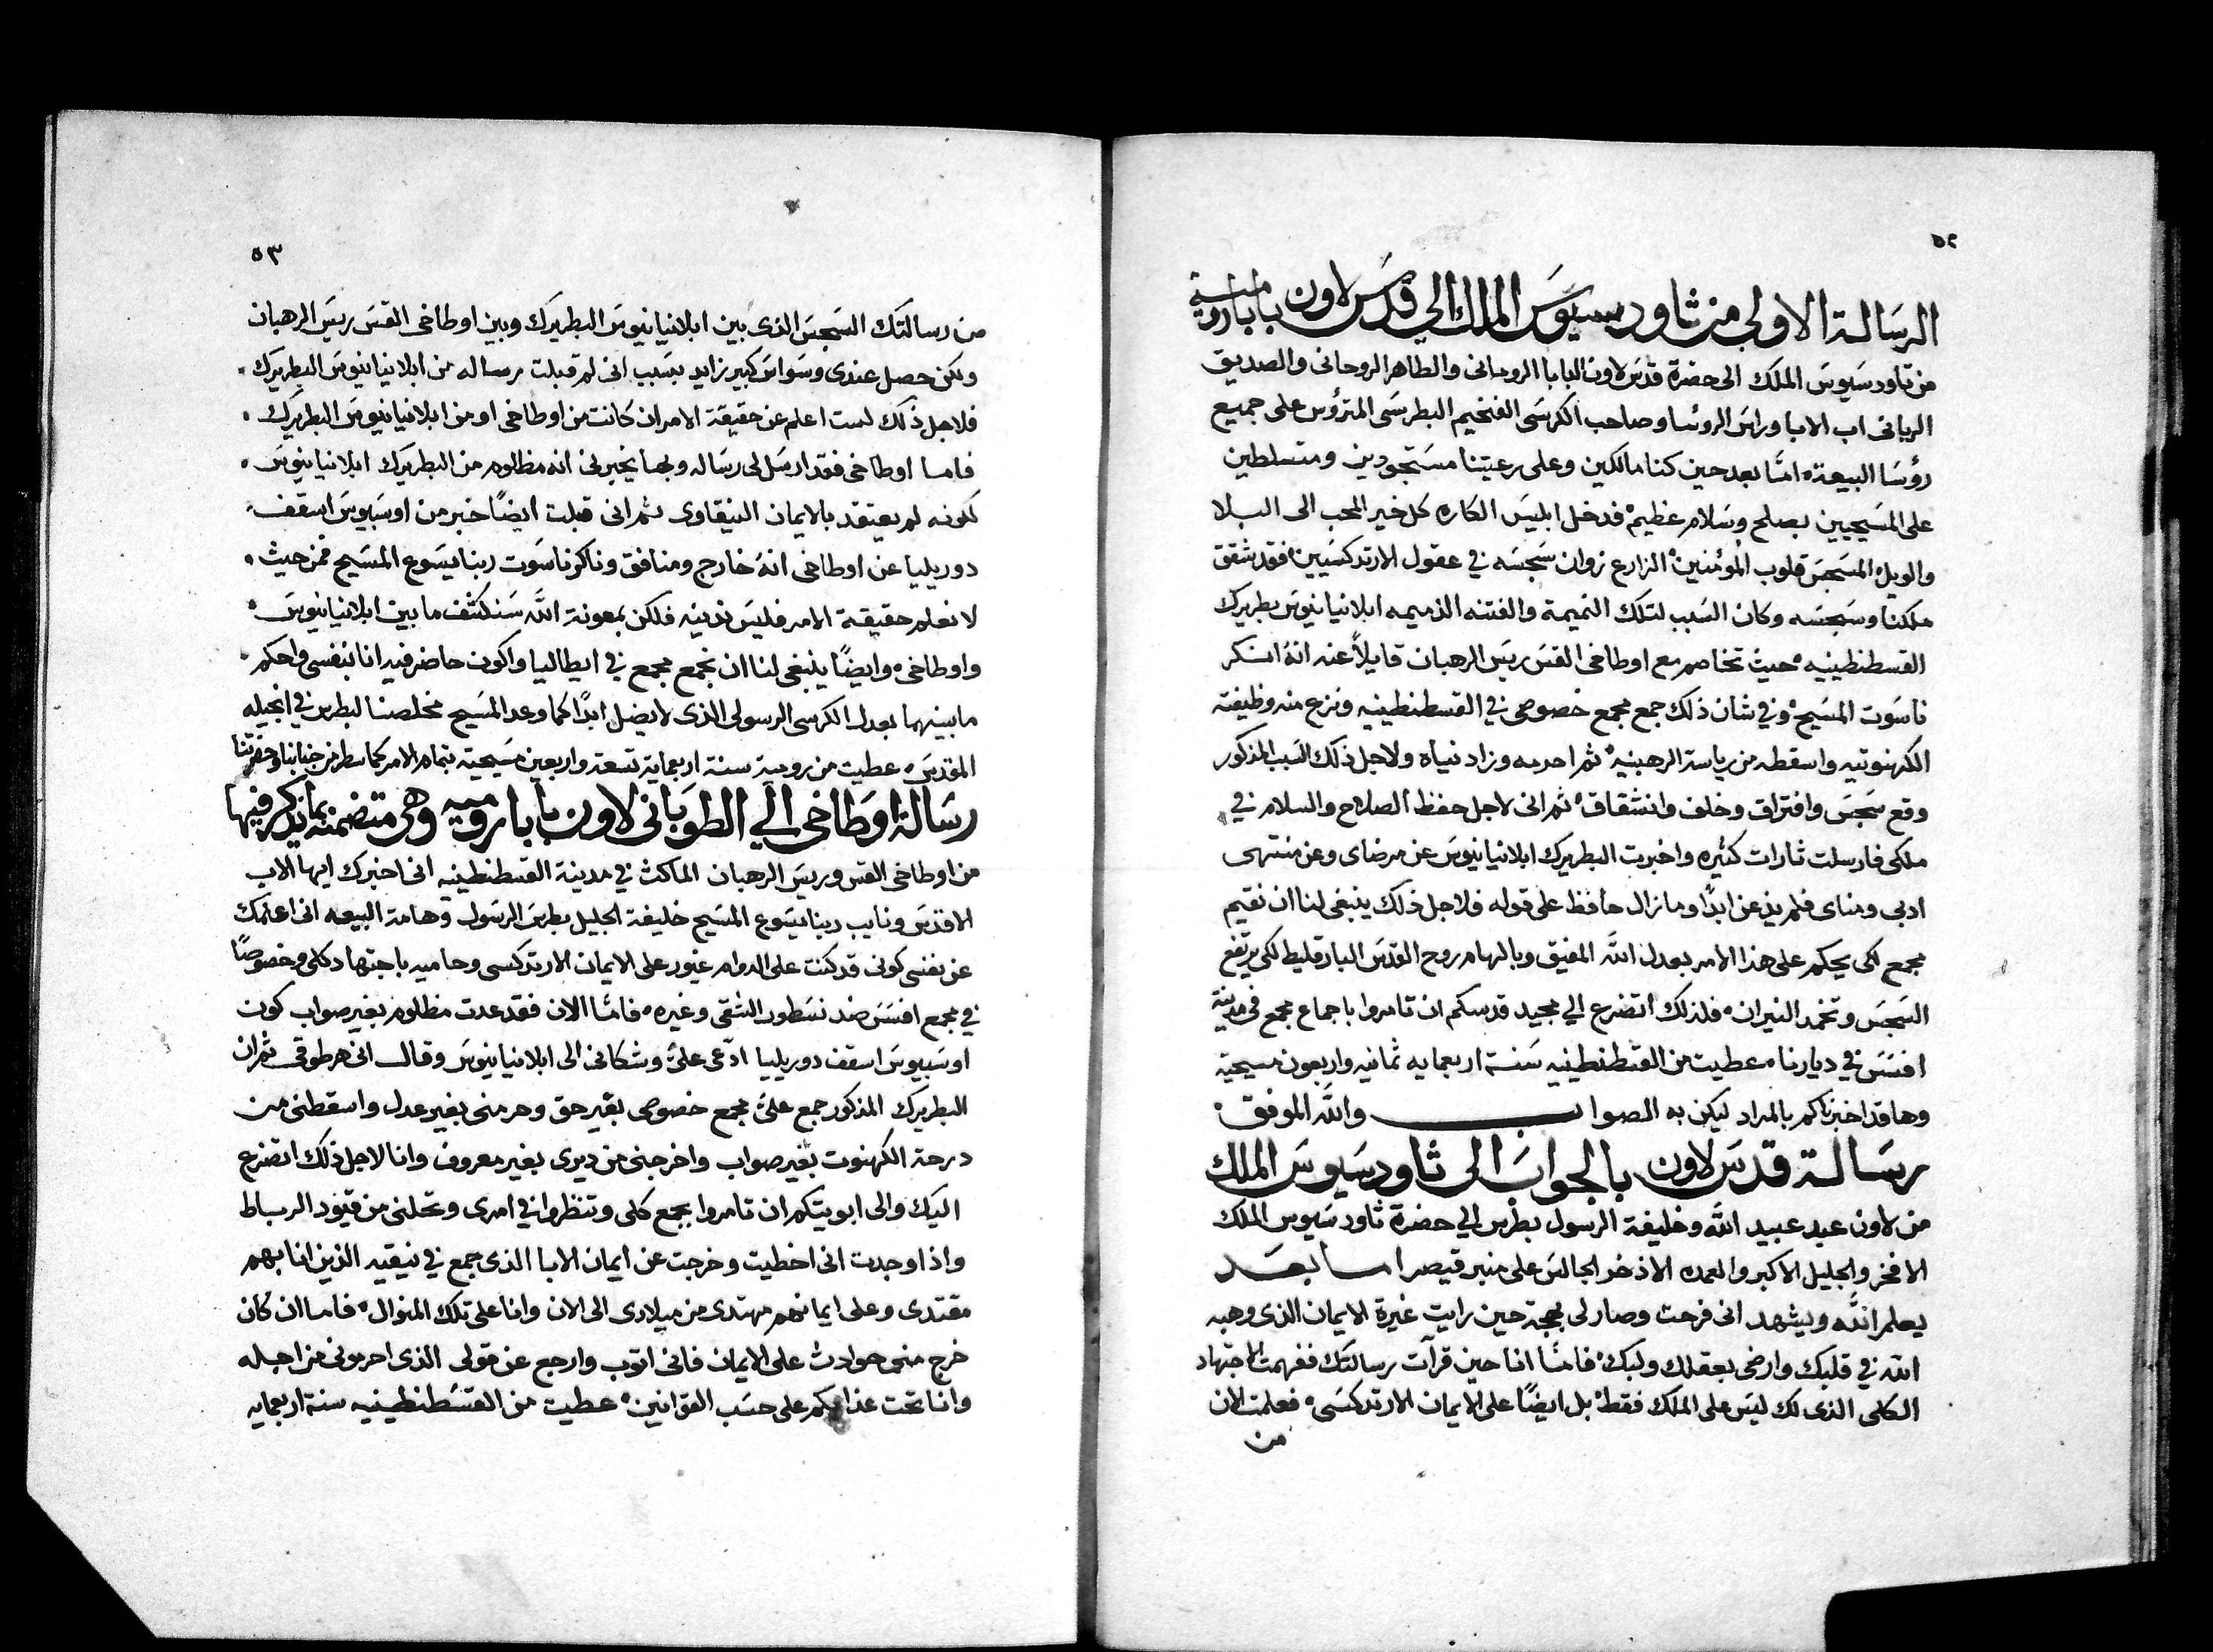 ٥٢
الرسالة الاولى من ثاودسيوس الملك الي قدس لاون بابا رومية
من ثاودسيوس الملك الى حضرة قدس لاون البابا الروماني والطاهر الروحاني والصديق
الرباني اب الابا وراس الروسا وصاحب الكرسي الفخيم البطرسي المترؤس على جميع
رؤسا البيعة، امّا بعد حين كنا مالكين وعلى رعيتنا مستجودين ومتسلطين
على المسيحيين بصلح وسلام عظيم، فدخل ابليس الكاره كل خير المحب الى البلا
والويل المسجس قلوب المؤمنين، الزارع زوان سجسه في عقول الارتدكسيين، فقد شقق
ملكنا وسجسه وكان السبب لتلك النميمة والفتنه الذميمه ابلانيانيوس بطريرك
القسطنطينيه، حيث تخاصم مع اوطاخي القس ريس الرهبان قايلاً عنه انهُ انكر
ناسوت المسيح، وفي شان ذلك جمع مجمع خصوصي في القسطنطينيه ونزع منه وظيفته
الكهنوتيه واسقطه من رياسة الرهبنيه، ثم احرمه وزاد نياه ولاجل ذلك السبب المذكور
وقع سجس وافتراق وخلف وانشقاق، ثم اني لاجل حفظ الصلاح والسلام في
ملكي فارسلت ثارات كثيره واخبرت البطريرك ابلانيانيوس عن مرضاي وعن منتهى
ادبي ومناي فلم يذعن ابدًا وما زال حافظ على قوله فلاجل ذلك ينبغي لنا ان نقيم
مجمع لكي يحكم على هذا الامر بعدل الله المفيق وبالهام روح القدس البارقليط لكي يرتفع
السجس وتخمد النيران، فلذلك اتضرع الي مجيد قدسكم ان تامروا باجماع مجمع في مدينة
افسس في ديارنا، عطيت من القسطنطينيه سنة اربعمايه ثمانيه واربعون مسيحية
وها قد اخبرناكم بالمراد ليكن به الصواب والله الموفق،
رسالة قدس لاون بالجواب الى ثاودسيوس الملك
من لاون عبد عبيد الله وخليفة الرسول بطرس الي حضرة ثاودسيوس الملك
الافخر والجليل الاكبر والعمده الاذخر الجالس على منبر قيصر اما بعد
يعلم الله ويشهد اني فرحت وصار لي بهجة حين رايت غيرة الايمان الذي وهبه
الله في قلبك وارضى بعقلك ولبك، فامّا انا حين قرآت رسالتك ففهمت الاجتهاد
الكلي الذي لك ليس على الملك فقط، بل ايضًا على الايمان الارتدكسي، فعلمت الان
من
٥٣
من رسالتك السجس الذي بين ابلانيانيوس البطريرك وبين اوطاخي القس ريس الرهبان
ولكن حصل عندي وسواس كبير زايد بسبب اني لم قبلت رساله من ابلانيانيوس البطريرك،
فلاجل ذلك لست اعلم عن حقيقة الامر ان كانت من اوطاخي او من ابلانيانيوس البطريرك،
فاما اوطاخي فقد ارسل لي رساله وبها يخبرني انه مظلوم من البطريرك ابلانيانيوس،
لكونه لم يعتقد بالايمان النيقاوي ثم اني قبلت ايضًا خبر من اوسبيوس اسقف
دوريليا عن اوطاخي انهُ خارج ومنافق وناكر ناسوت ربنا يسوع المسيح فمن حيث،
لا نعلم حقيقة الامر فليس ندينه فلكن بمعونة الله سنكشف ما بين ابلانيانيوس،
واوطاخي، وايضًا ينبغي لنا ان نجمع مجمع في ايطاليا واكون حاضر فيه انا بنفسي واحكم،
ما بينهما بعدل الكرسي الرسولي الذي لا يضل ابدًا كما وعد المسيح مخلصنا لبطرس في انجيله
المقدس، عطيت من رومية سنة اربعماية تسعة واربعين مسيحية بتمام الامر كما سطر من جنابنا وحضرتنا
رسالة اوطاخي الي الطوباني لاون بابا رومية وهي متضمنه بما يذكر فيها
من اوطاخي القس وريس الرهبان الماكث في مدينة القسطنطينيه اني اخبرك ايها الاب
الاقدس ونايب ربنا يسوع المسيح خليفة الجليل بطرس الرسول وهامة البيعه اني اعلمك
عن نفسي كوني قد كنت على الدوام غيور على الايمان الارتدكسي وحاميه باجتهاد كلي وخصوصًا
في مجمع افسس ضد نسطور الشقي وغيره، فامّا الان فقد عدت مظلوم بغير صواب كون
اوسبيوس اسقف دوريليا ادّعى عليّ وشكاني الى ابلانيانيوس وقال اني هرطوقي ثم ان
البطريرك المذكور جمع عليّ مجمع خصوصي بغير حق وحرمني بغير عدل واسقطني من
درجة الكهنوت بغير صواب واخرجني من ديري بغير معروف وانا لاجل ذلك اتضرع
اليك والى ابويتكم ان تامروا بجمع كلي وتنظروا في امري وتحلني من قيود الرباط
واذا وجدت اني اخطيت وخرجت عن ايمان الابا الذي جمع في نيقيه الذين انا بهم
مقتدي وعلى ايمانهم مهتدي من ميلادي الى الان وانا على تلك المنوال، فاما ان كان
خرج مني حوادث على الايمان فاني اتوب وارجع عن قولي الذي احرموني من اجله
وانا تحت عذابكم على حسب القوانين، عطيت من القسطنطينيه سنة اربعمايه